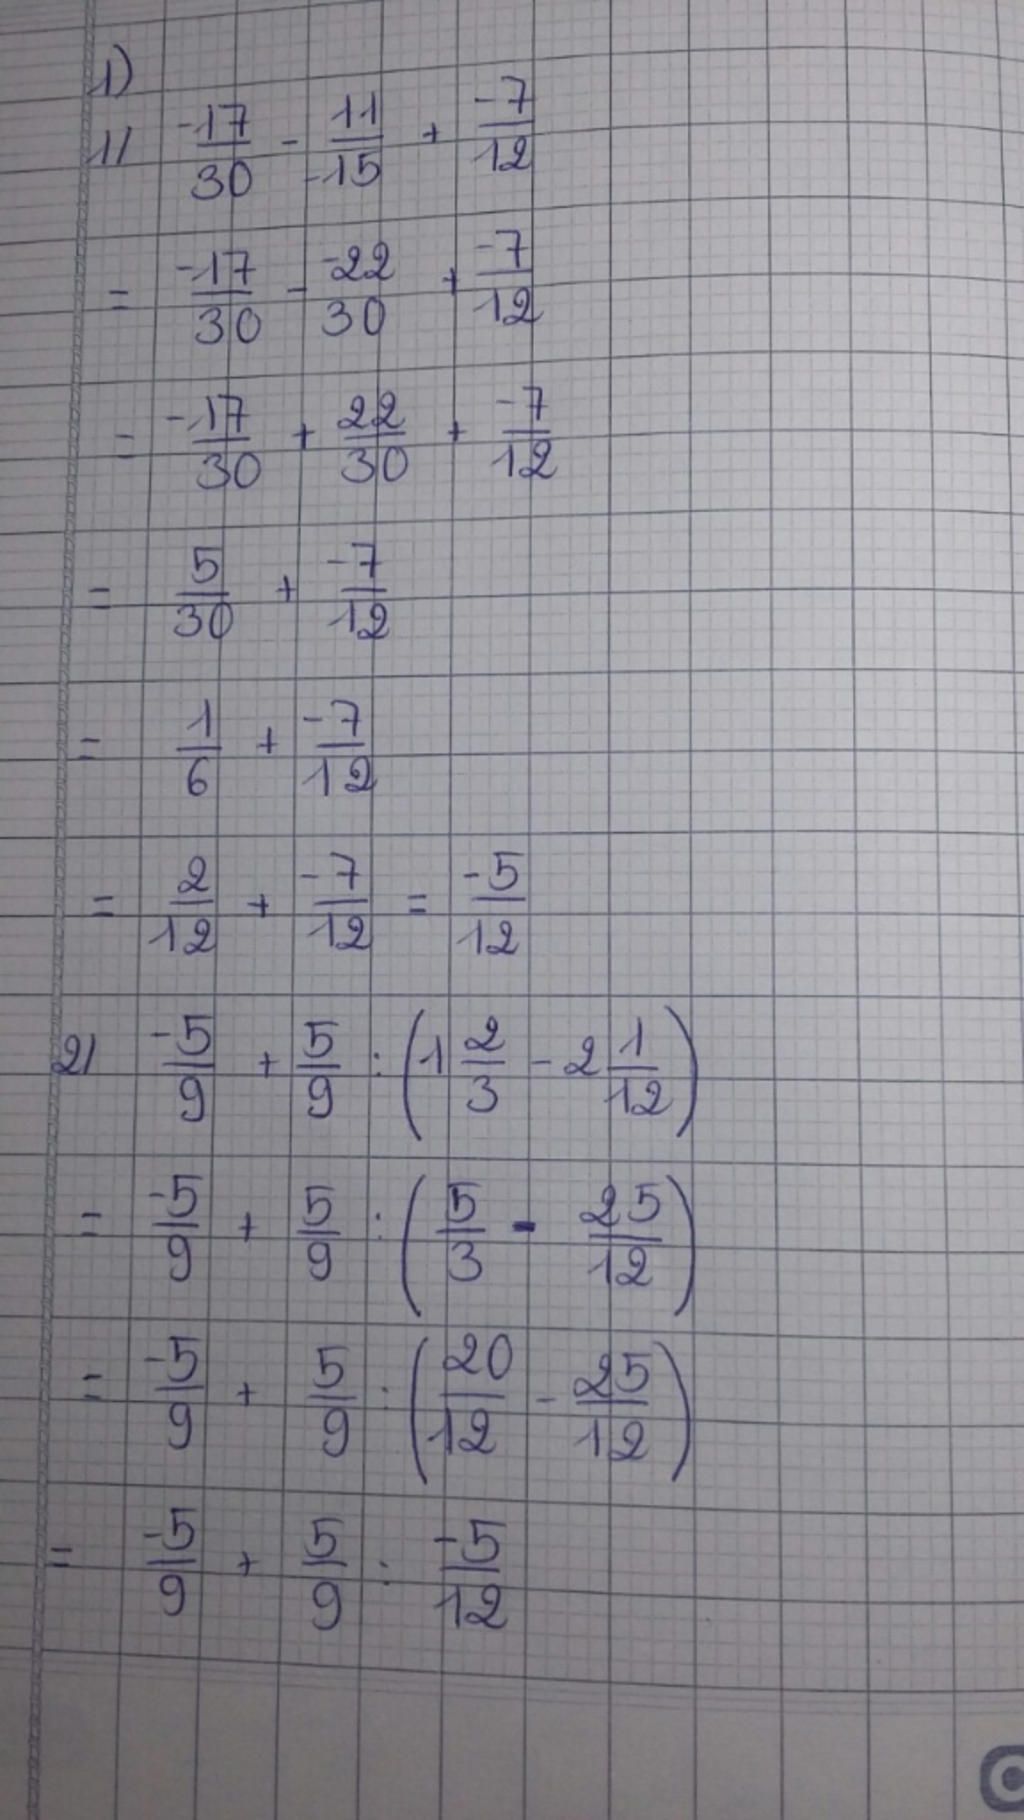 1)
1/ -17/30 - 11/-15 + -7/12
= -17/30 - -22/30 + -7/12
= -17/30 + 22/30 + -7/12
= 5/30 + -7/12
= 1/6 + -7/12
= 2/12 + -7/12 = -5/12
2/ -5/9 + 5/9 : (1 2/3 - 2 1/12)
= -5/9 + 5/9 : (5/3 - 25/12)
= -5/9 + 5/9 : (20/12 - 25/12)
= -5/9 + 5/9 : -5/12